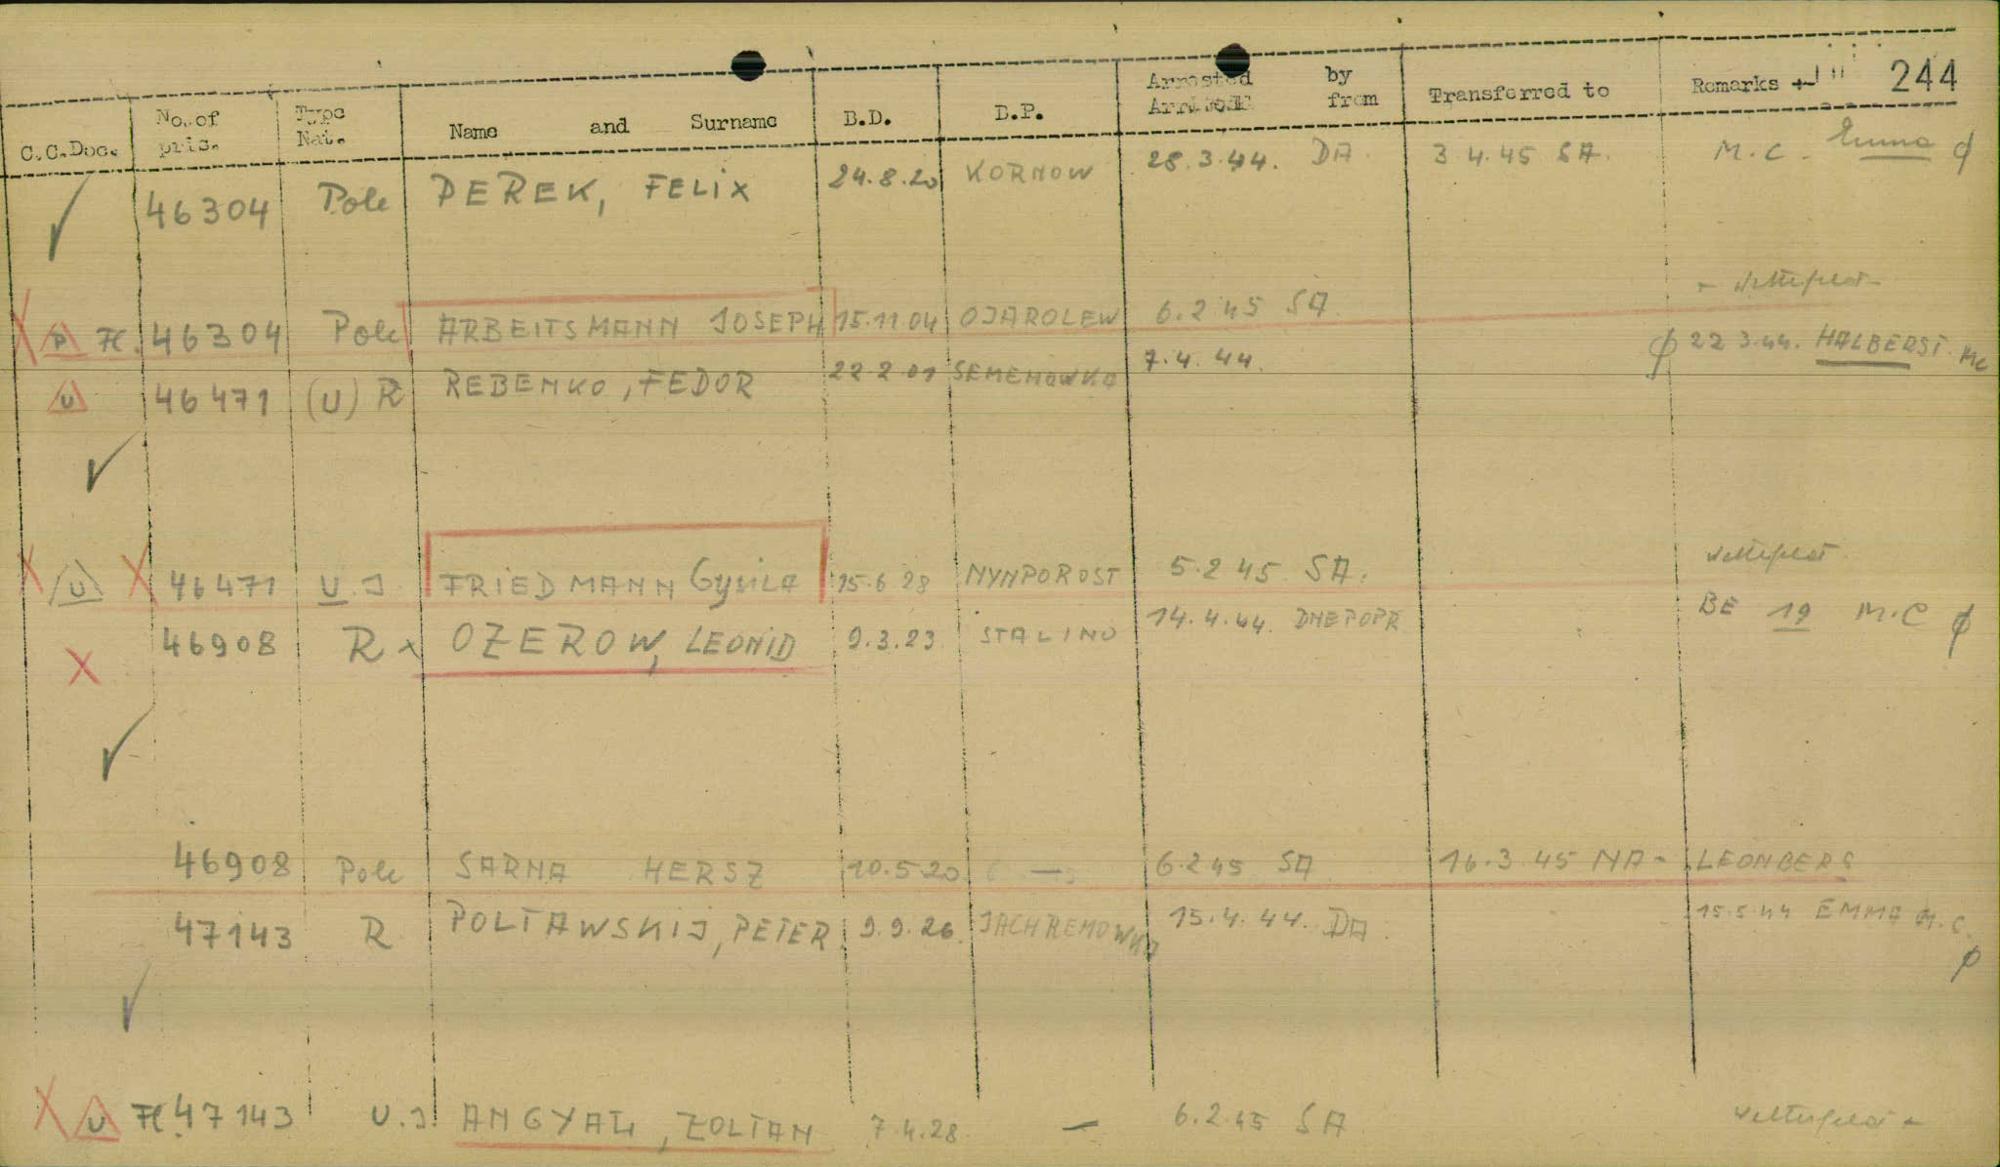 C.C.Doc. No. of pris. Type Nat. Name and Surname B.D. B.P. Arrested by Arrived from Transferred to Remarks + 244
46304 Pole PEREK, FELIX 24.8.20 KORNOW 28.3.44. DA. 3.4.45 SA. M.C. Emma ϕ
P 46304 Pole ARBEITSMANN JOSEPH 15.11.04 OJAROLEW 6.2.45 SA.
U 46471 (U) R REBENKO, FEDOR 22.2.01 SEMENOWKA 7.4.44. ϕ 22.3.44. HALBERST. MC
U 46471 U.J FRIEDMANN Gysila 15.6.28 NYNPOROST 5.2.45 SA.
46908 R x OZEROW, LEONID 9.3.23 STALINO 14.4.44. DNEPOPR BE 19 M.C ϕ
46908 Pole SARNA HERSZ 10.5.20 — 6.2.45 SA 16.3.45 NA - LEONBERG
47143 R POLTAWSKIJ, PETER 9.9.26. JACHREMOWKA 15.4.44. DA. 15.5.44 EMMA M.C. ϕ
U 47143 U.J. ANGYAL, ZOLTAN 7.4.28 — 6.2.45 SA